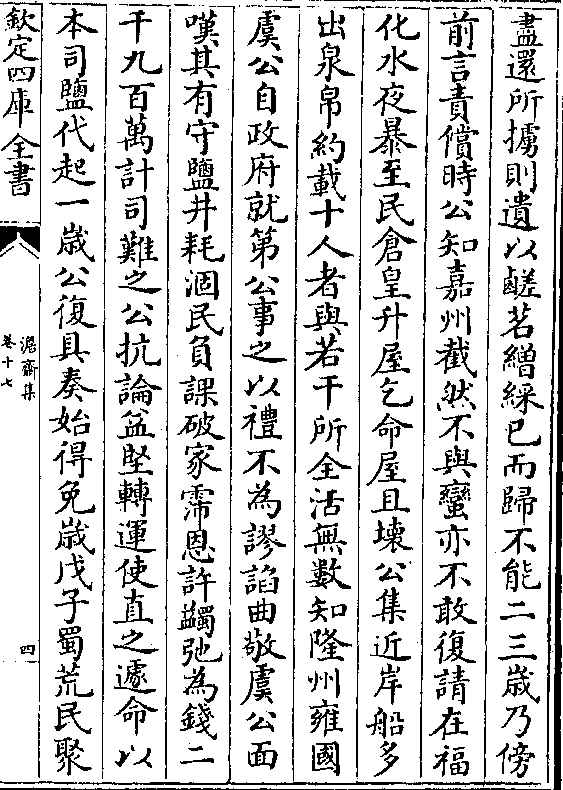 盡還所擄則遺以鹺茗繒綵已而歸不能二三歲乃傍
前言責償時公知嘉州截然不與蠻亦不敢復請在福
化水夜暴至民倉皇升屋乞命屋且壞公集近岸船多
出泉帛約載十人者與若干所全活無數知隆州雍國
虞公自政府就第公事之以禮不為謬諂曲敬虞公面
嘆其有守鹽井耗涸民負課破家霈恩許蠲弛為錢二
千九百萬計司難之公抗論益堅轉運使直之遽命以
本司鹽代起一歲公復具奏始得免歲戊子蜀荒民聚
欽定四庫全書
澹齋集
卷十七
四